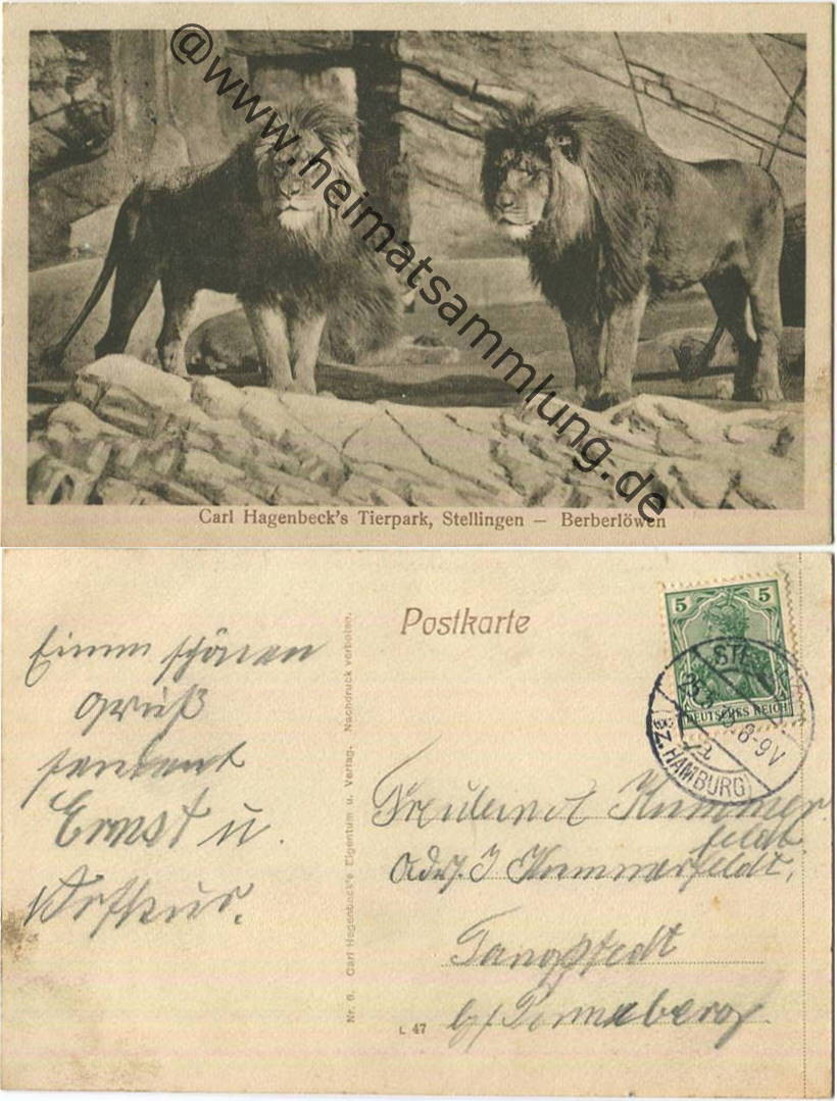 @www.heimatsammlung.de
Carl Hagenbeck's Tierpark, Stellingen — Berberlöwen
Postkarte
5 5
DEUTSCHES REICH
8-9V
(BZ. HAMBURG)
Einen schönen
Gruß
sendent
Ernst u.
Arthur.
Nr. 6. Carl Hagenbeck's Eigentum u. Verlag. Nachdruck verboten.
Kummer
feldt
Adr. J Kummerfeldt,
Tangstedt
b/Pinneberg
L 47